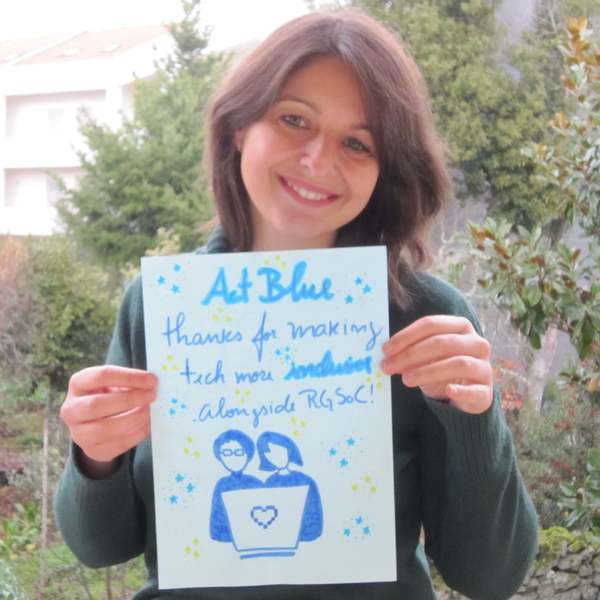 Act Blue
thanks for making
tech more inclusive
alongside RGSoC!